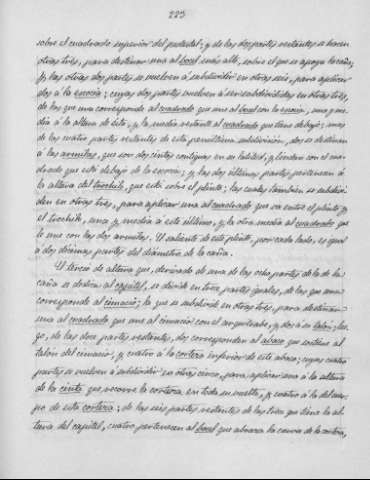 223
sobre el cuadrado inferior del pedestal; y de las dos partes restantes se hacen
otras tres, para destinar una al bocel más alto, sobre el que se apoya la caña;
y las otras dos partes se vuelven á subdividir en otras seis, para aplicar
dos á la escocia; cuyas dos partes vuelven á ser subdivididas en otras tres,
de las que una corresponde al cuadrado que une al bocel con la escocia, una y me-
dia á la altura de ésta, y la media restante al cuadrado que tiene debajo; unas
de las cuatro partes restantes de esta penúltima subdivisión, dos se destinan
á las armitas, que son dos cintas contiguas en su totalidad, y lindan con el cua-
drado que está debajo de la escocia; y las dos últimas partes pertenecen á
la altura del torchito, que está sobre el plinto; las cuales también se subdivi-
den en otras tres, para aplicar una al cuadrado que va entre el plinto y
el torchito, una y media á este último, y la otra media al cuadrado que
le une con las dos armitas. El saliente de este plinto, por cada lado, es igual
á dos décimas partes del diámetro de la caña.
El tercio de altura que, derivado de una de las ocho partes de la de la
caña se dedica al capitel, se divide en trece partes iguales, de las que una
corresponde al cimacio; la que se subdivide en otras tres, para destinar
una al cuadrado que une al cimacio con el arquitrabe, y dos á su talón; lue-
go, de las doce partes restantes, dos corresponden al abaco que sostiene al
talón del cimacio, y cuatro á la corteza inferior de este abaco; cuyas cuatro
partes se vuelven á subdividir en otras cinco, para aplicar una á la altura
de la cinta que recorre la corteza en toda su vuelta, y cuatro á la del cam-
po de esta corteza; de las seis partes restantes de las trece que tiene la al-
tura del capitel, cuatro pertenecen al bocel que abraza la curva de la corteza,